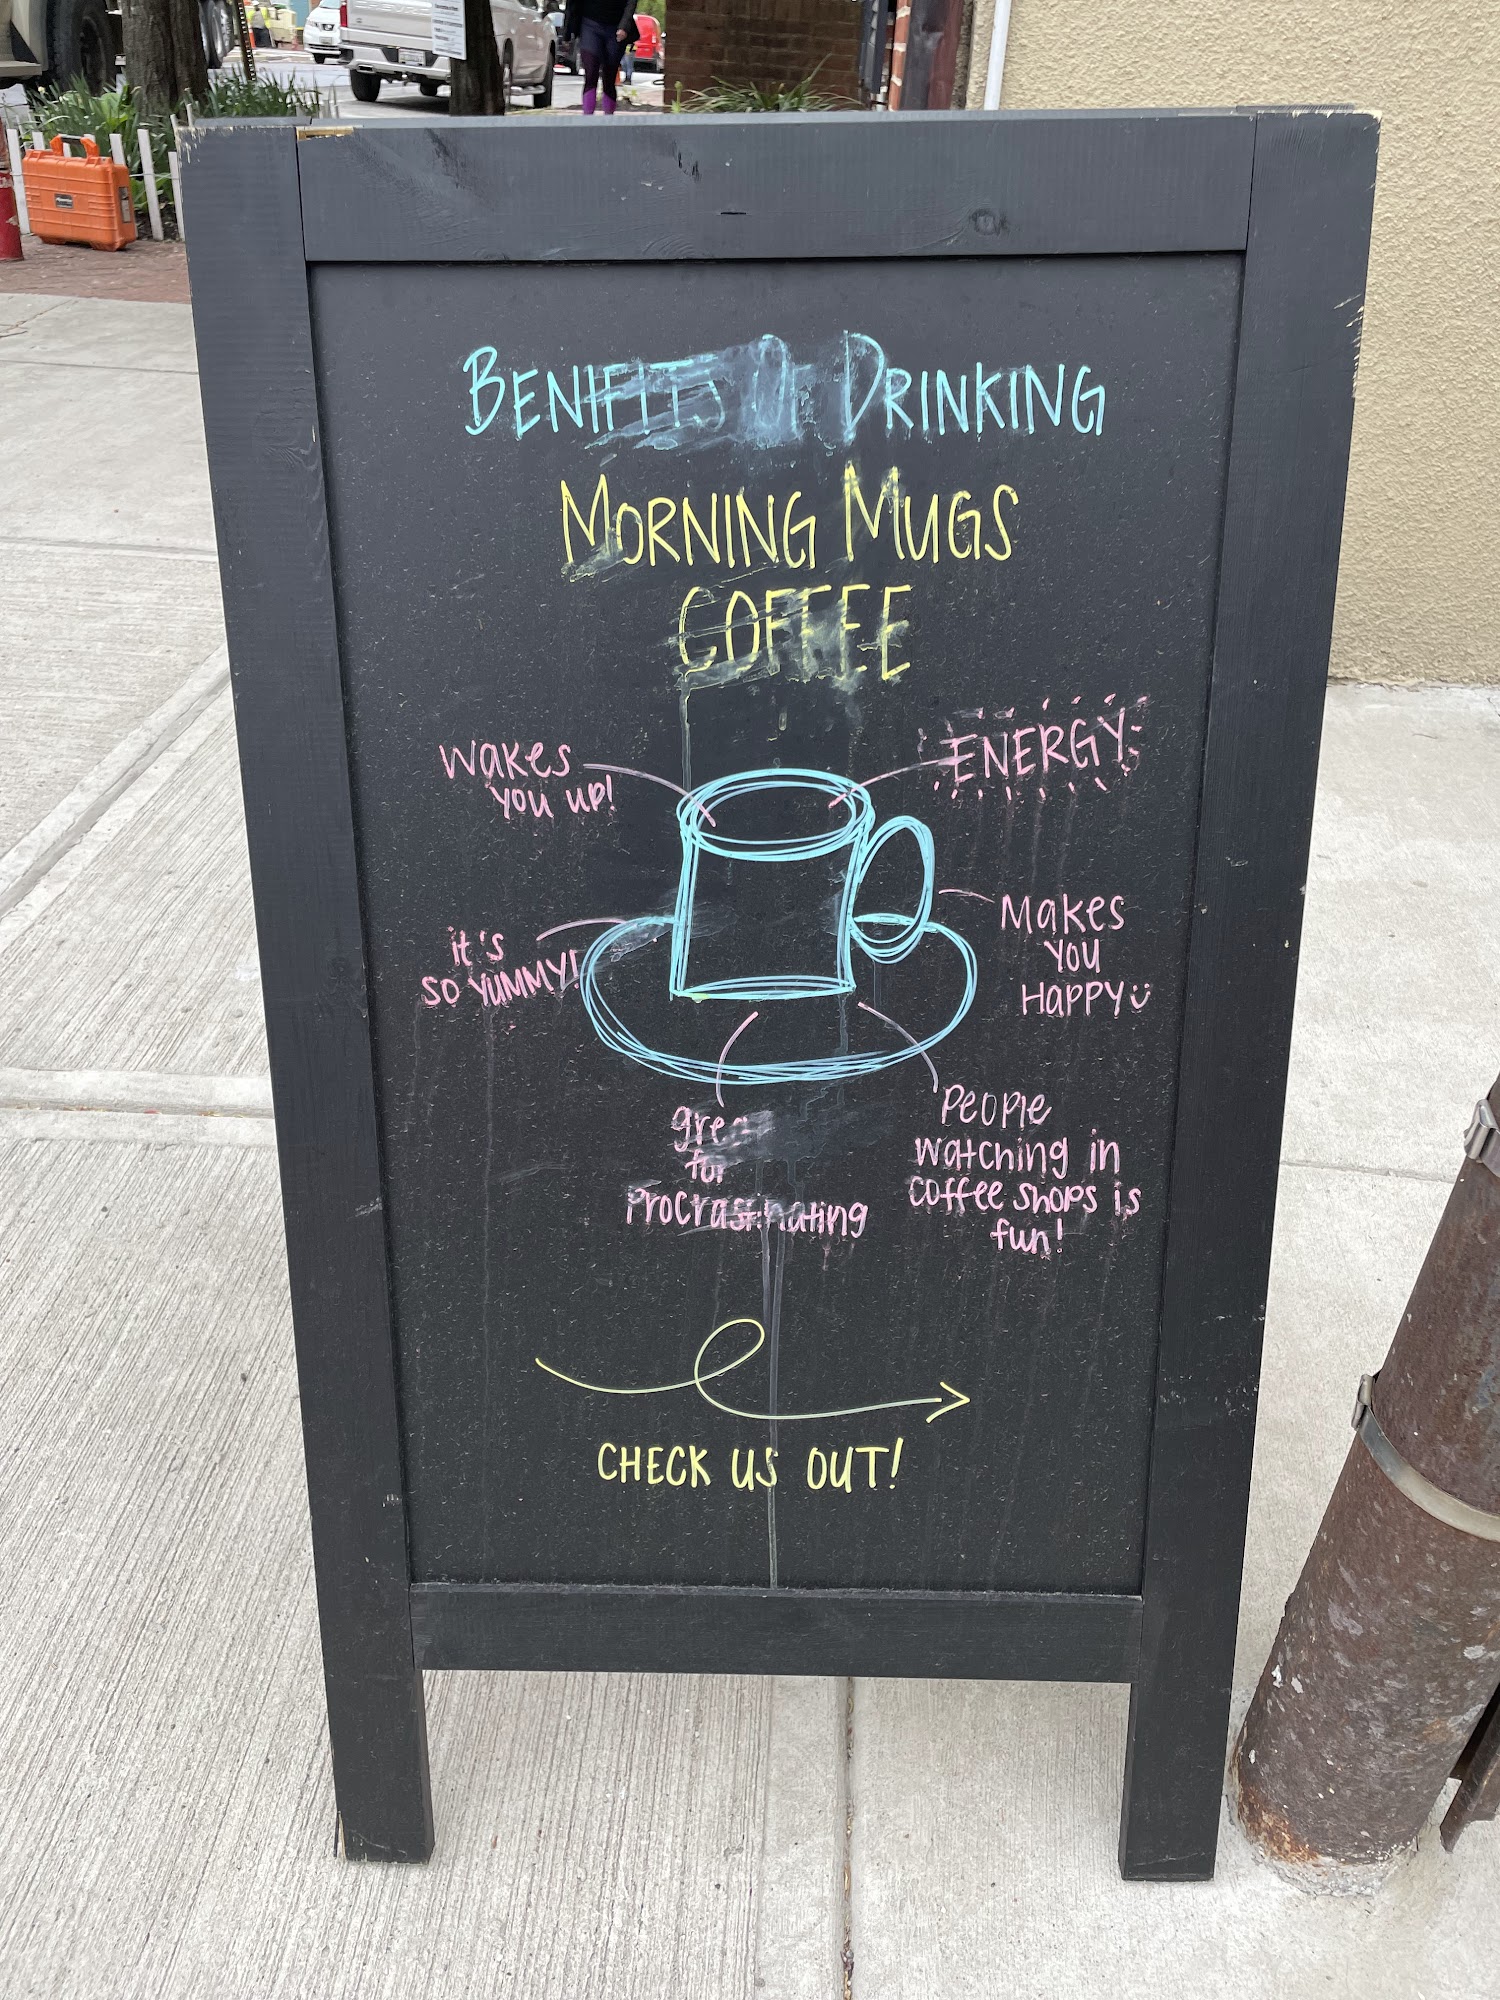 BENIFITS OF DRINKING
MORNING MUGS
COFFEE
wakes
you up!
ENERGY
it's
so YUMMY!
Makes
you
Happy
great
for
Procrastinating
People
watching in
coffee shops is
fun!
CHECK US OUT!